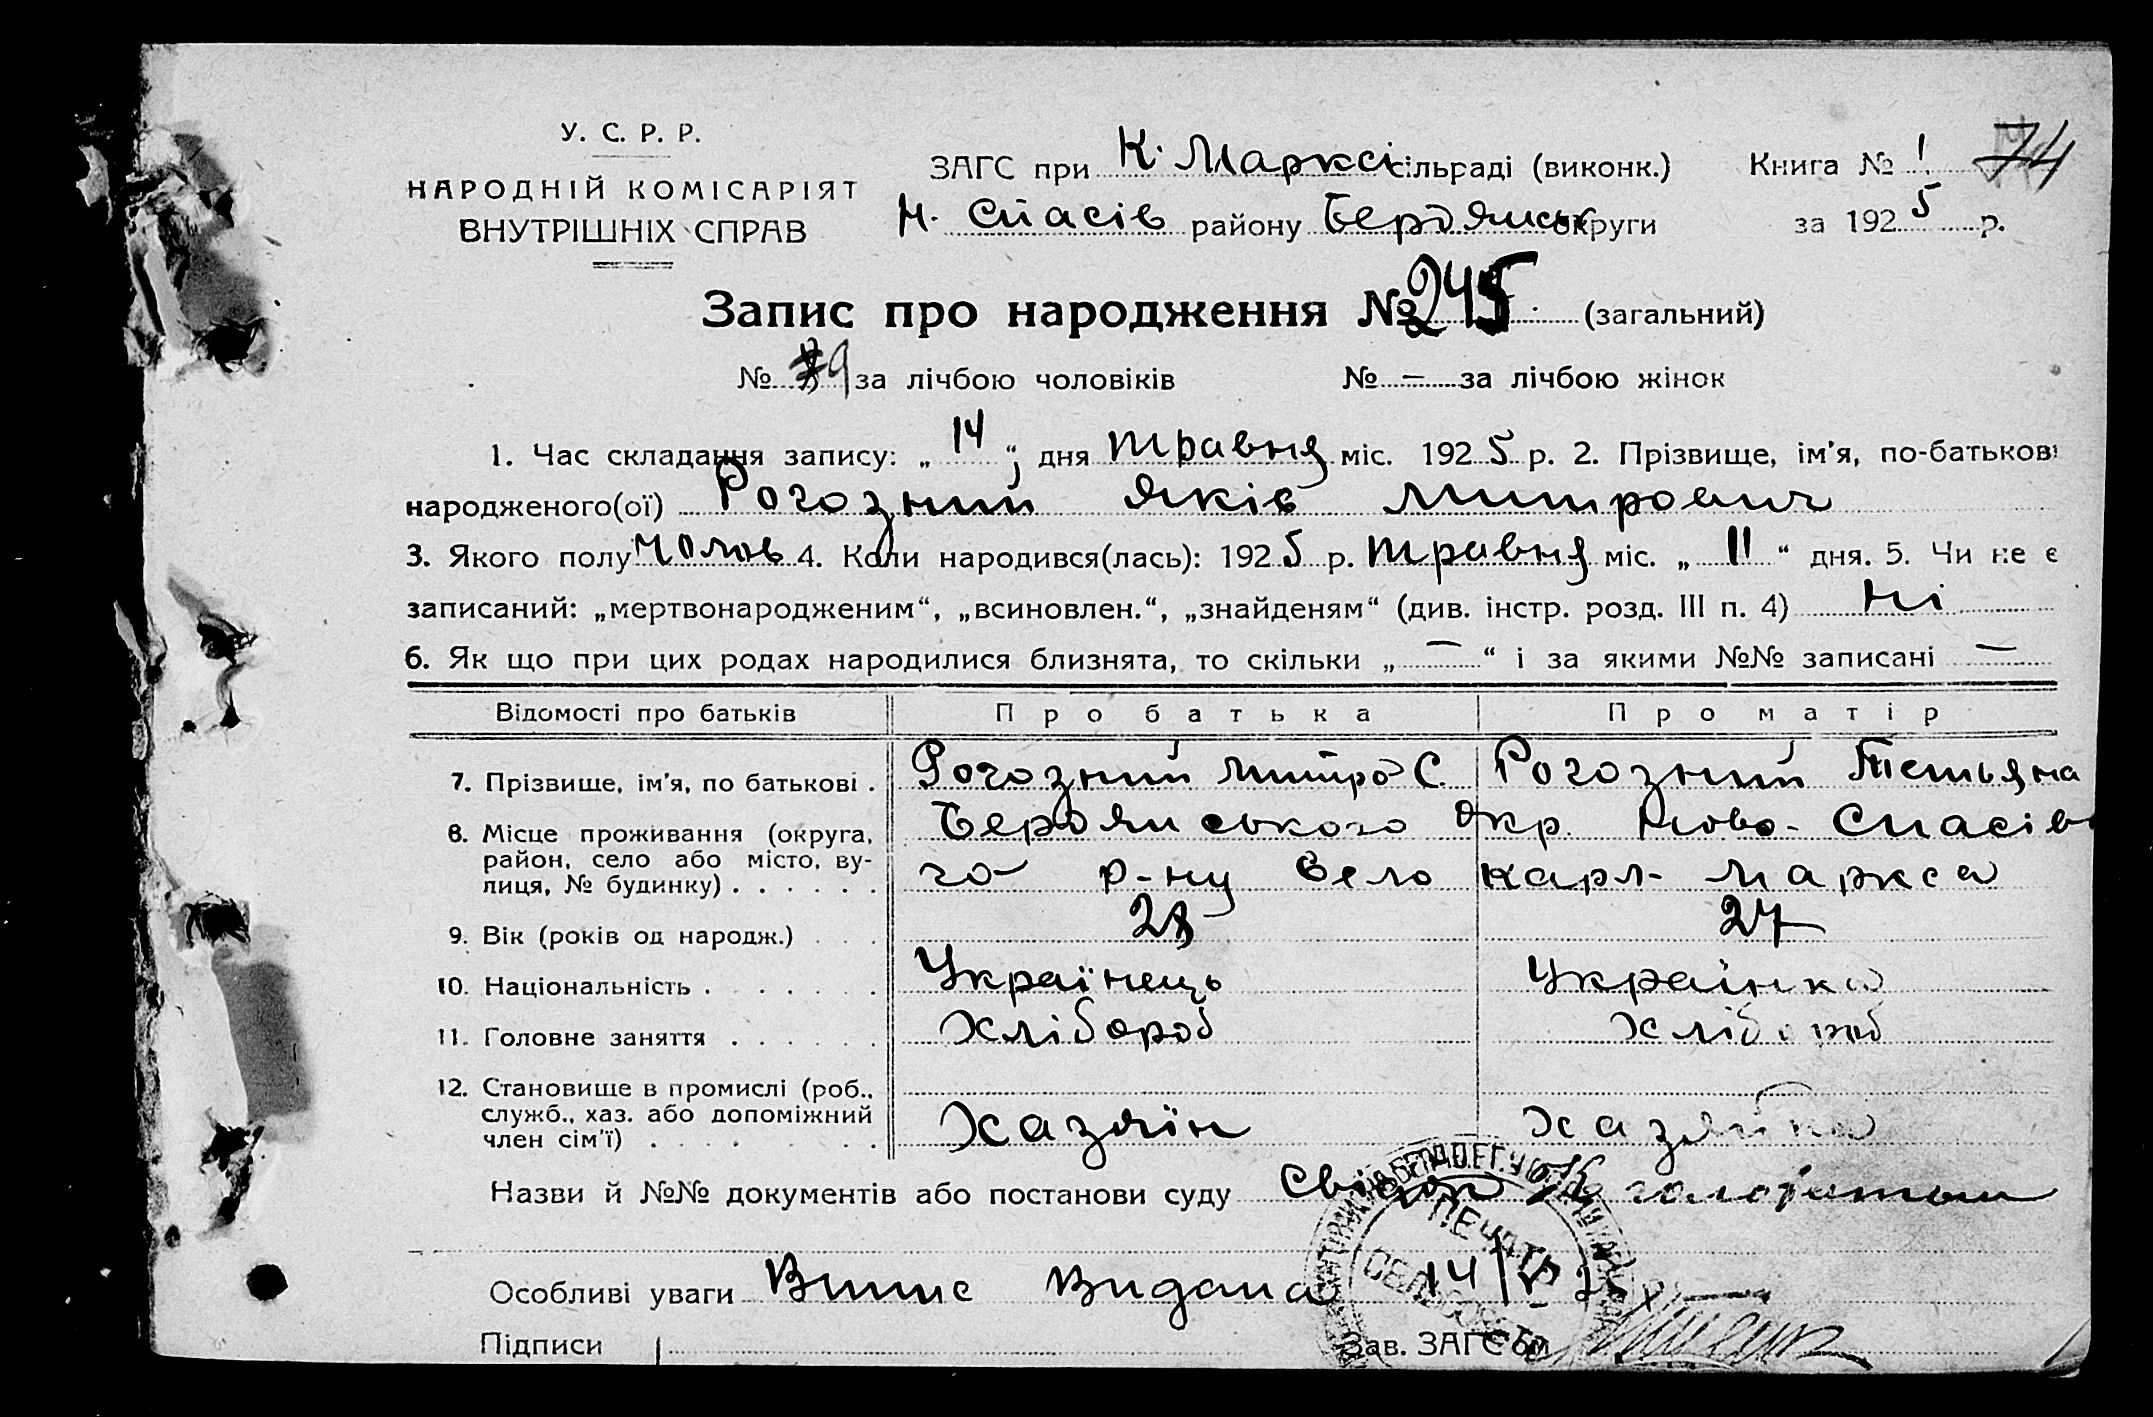 У. С. Р. Р.
НАРОДНІЙ КОМІСАРІЯТ
ВНУТРІШНІХ СПРАВ
ЗАГС при К. Марксі сільраді (виконк.) Книга № 1 74
Н. Спасів району Бердянськ округи за 1925 р.
Запис про народження № 245 (загальний)
№ 79 за лічбою чоловіків № — за лічбою жінок
1. Час складання запису: „14“ дня травня міс. 1925 р. 2. Прізвище, ім'я, по-батькові
народженого(ої) Рогозний Яків Митрович
3. Якого полу чолов 4. Коли народився(лась): 1925 р. травня міс. „11“ дня. 5. Чи не є
записаний: „мертвонародженим“, „всиновлен.“, „знайденям“ (див. інстр. розд. III п. 4) Ні
6. Як що при цих родах народилися близнята, то скільки „—“ і за якими №№ записані —
Відомості про батьків Про батька Про матір
7. Прізвище, ім'я, по батькові . Рогозний Митро С. Рогозний Тетьяна
8. Місце проживання (округа, Бердянського Окр. Ново-Спасівс
район, село або місто, ву-
лиця, № будинку) . . . . . . го р-ну село Карл-Маркса
9. Вік (років од народж.) . . . 28 27
10. Національність . . . . . . . Українець Українка
11. Головне заняття . . . . . . Хлібороб Хлібороб
12. Становище в промислі (роб.,
служб., хаз. або допоміжний
член сім'ї) . . . . . . . . Хазяїн Хазяйка
Назви й №№ документів або постанови суду
Особливі уваги Випис Видана 14/V 25
ПЕЧАТЬ
СЕЛЬСОВЕТА
Підписи Зав. ЗАГС'ом